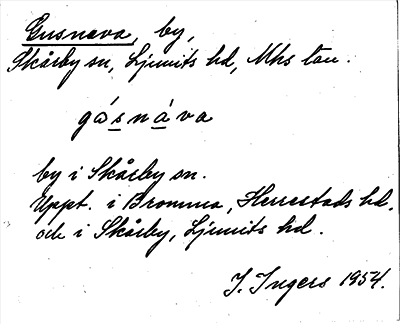 Gusnava, by,
Skårby sn, Ljunits hd, Mhs län.
gǻsnáva
by i Skårby sn.
Uppt. i Bromma, Herrestads hd.
och i Skårby, Ljunits hd.
I. Ingers 1954.